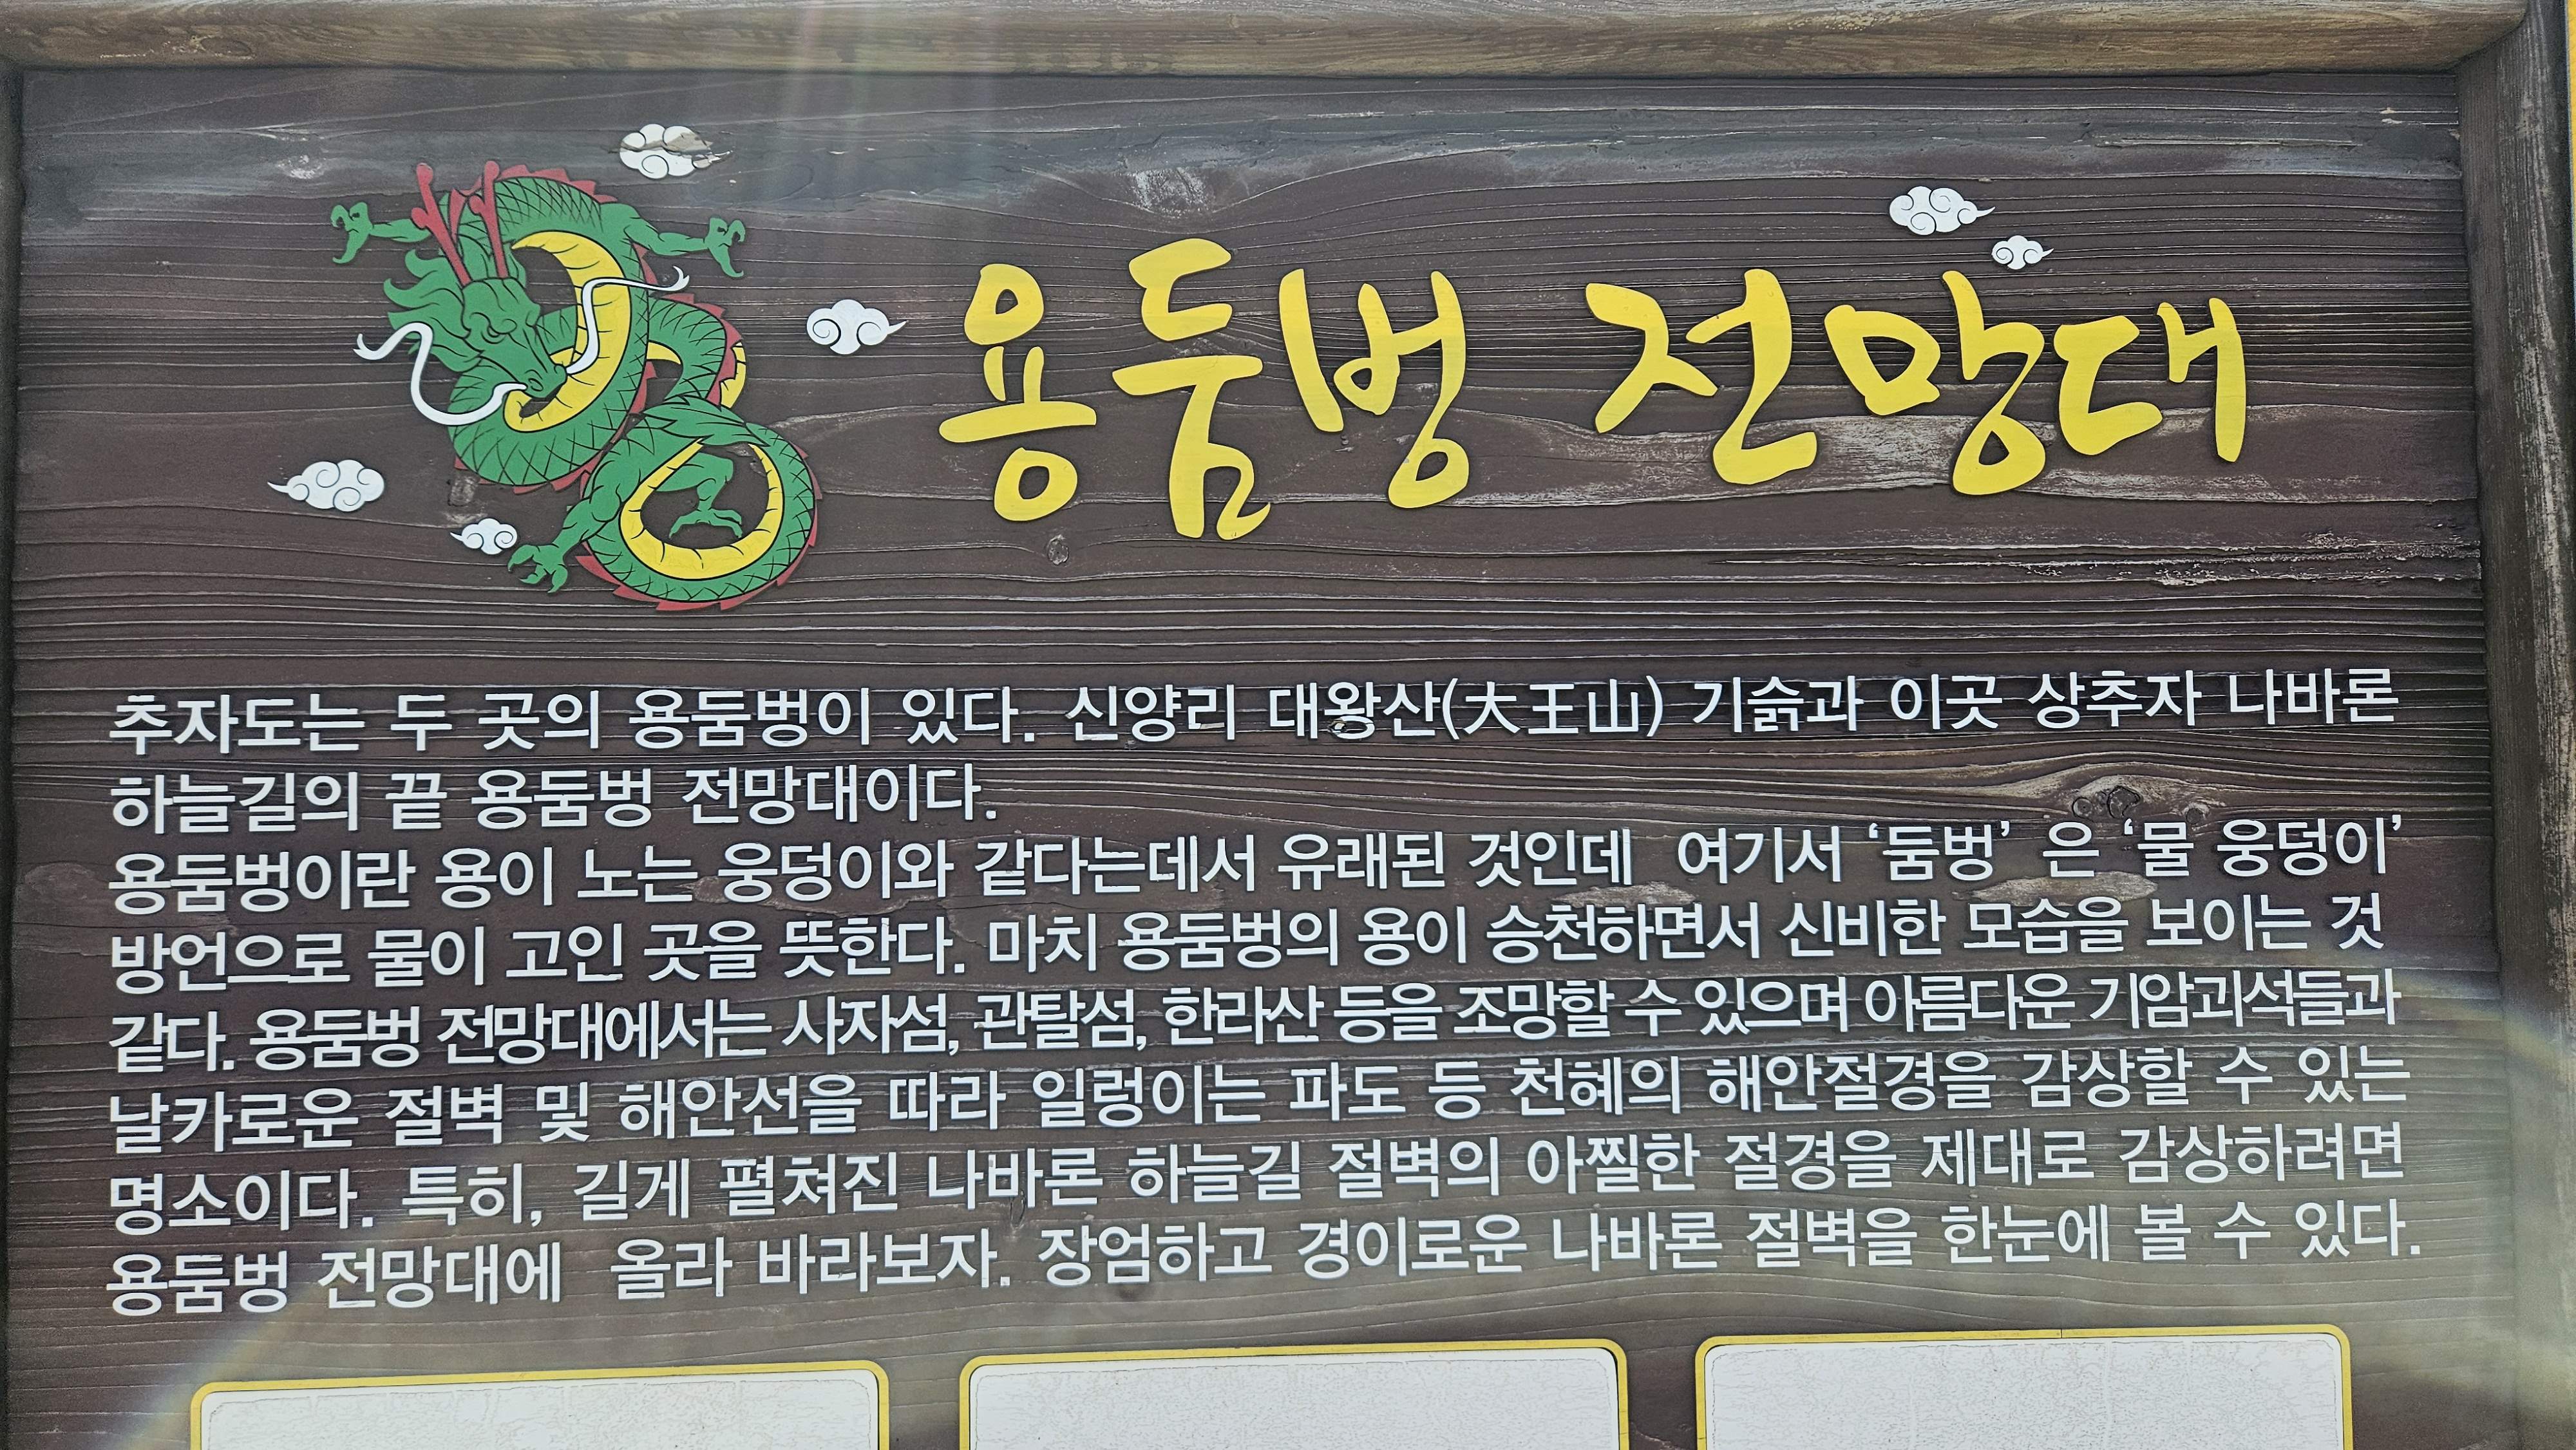 용둠벙 전망대
추자도는 두 곳의 용둠벙이 있다. 신양리 대왕산(大王山) 기슭과 이곳 상추자 나바론
하늘길의 끝 용둠벙 전망대이다.
용둠벙이란 용이 노는 웅덩이와 같다는데서 유래된 것인데 여기서 ‘둠벙’ 은 ‘물 웅덩이’
방언으로 물이 고인 곳을 뜻한다. 마치 용둠벙의 용이 승천하면서 신비한 모습을 보이는 것
같다. 용둠벙 전망대에서는 사자섬, 관탈섬, 한라산 등을 조망할 수 있으며 아름다운 기암괴석들과
날카로운 절벽 및 해안선을 따라 일렁이는 파도 등 천혜의 해안절경을 감상할 수 있는
명소이다. 특히, 길게 펼쳐진 나바론 하늘길 절벽의 아찔한 절경을 제대로 감상하려면
용둠벙 전망대에 올라 바라보자. 장엄하고 경이로운 나바론 절벽을 한눈에 볼 수 있다.